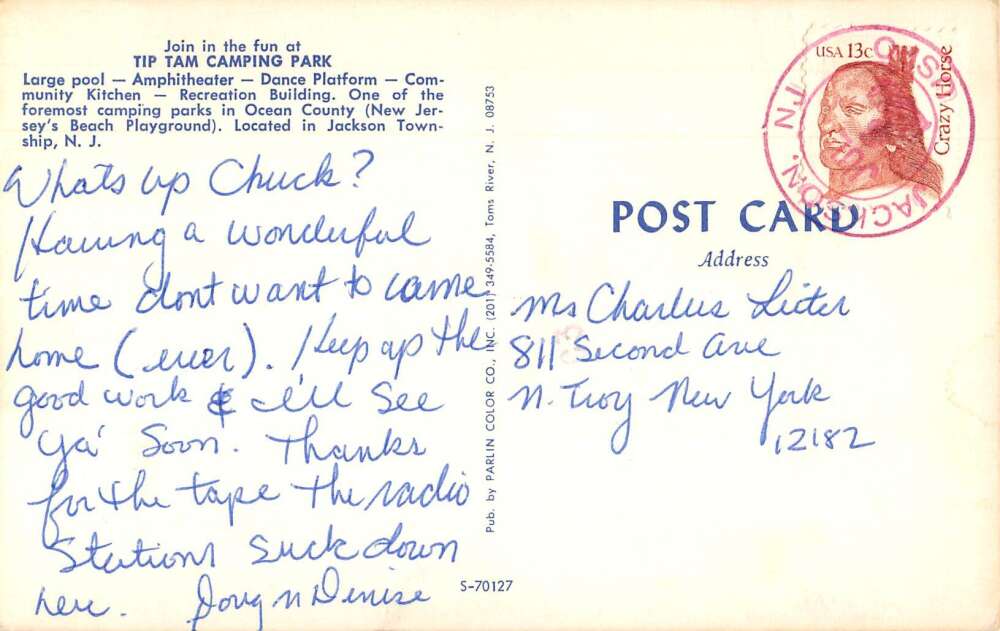 Join in the fun at
TIP TAM CAMPING PARK
Large pool — Amphitheater — Dance Platform — Com-
munity Kitchen — Recreation Building. One of the
foremost camping parks in Ocean County (New Jer-
sey's Beach Playground). Located in Jackson Town-
ship, N. J.
Whats up Chuck?
Having a wonderful
time dont want to came
home (ever). Keep up the
good work & I'll See
ya' Soon. Thanks
for the tape the radio
Stations suck down
here. Doug n Denise
Pub. by PARLIN COLOR CO., INC. (201) 349-5584, Toms River, N. J. 08753
S-70127
USA 13c
Crazy Horse
JACKSON, NJ
USPO
POST CARD
Address
Ms Charles Lieter
811 Second Ave
N. Troy New York
12182